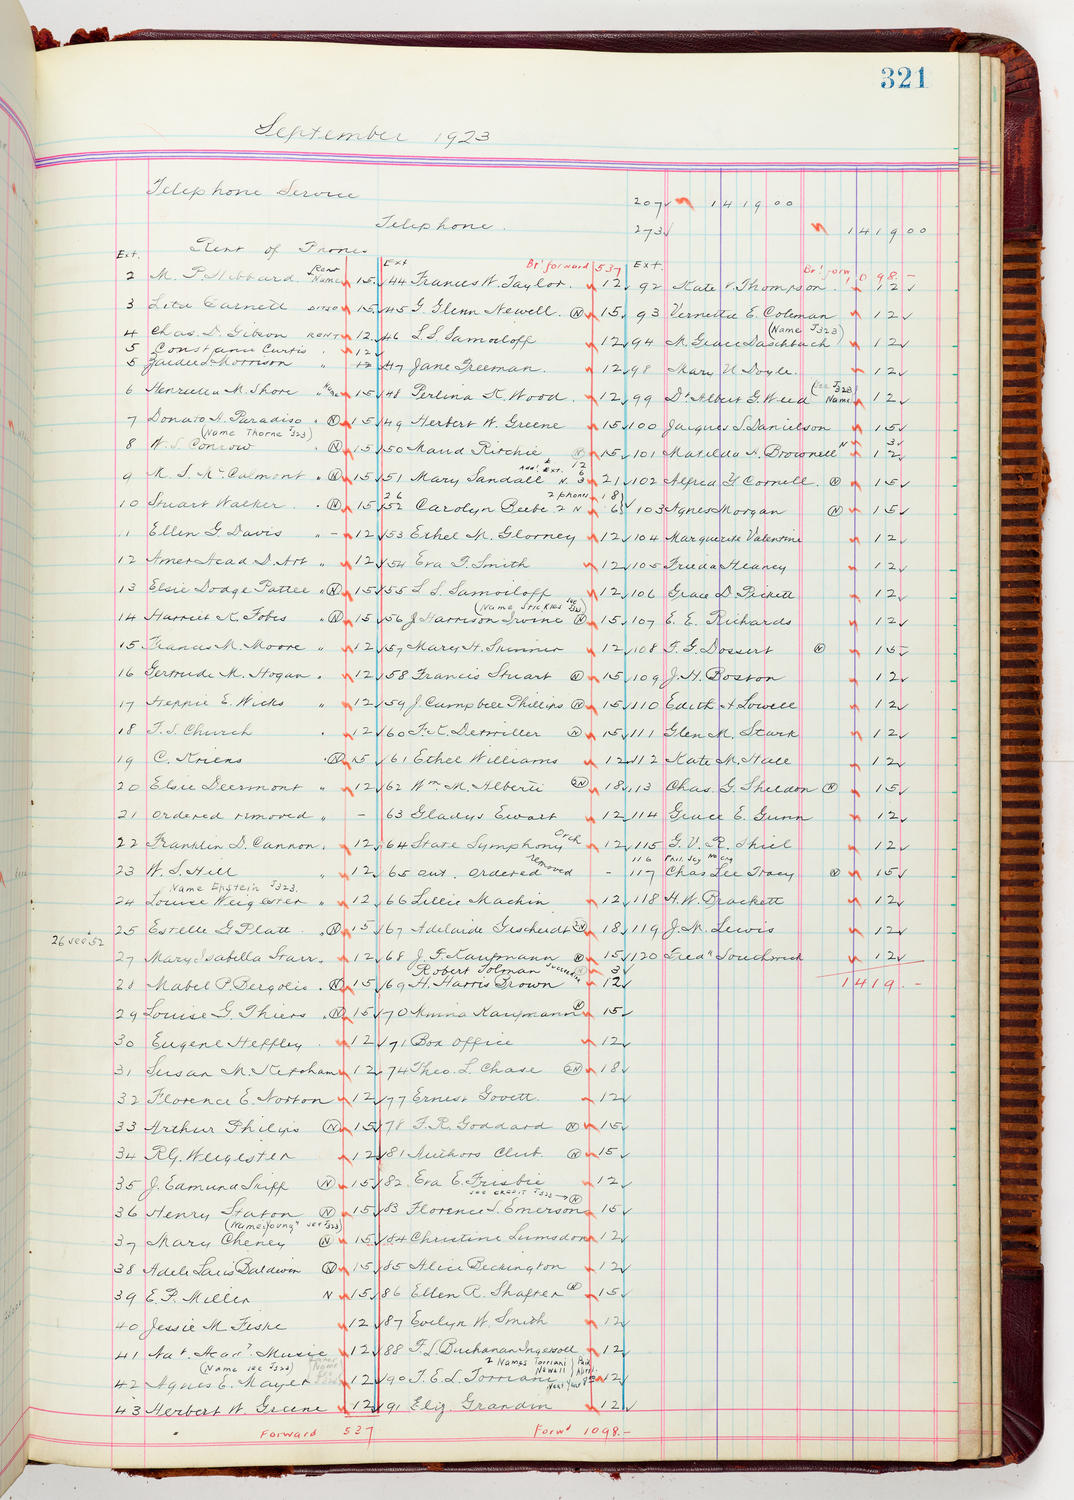 321
September 1923
Telephone Service
207 1419 00
Telephone.
273 1419 00
Rent of Phones
Ext.
2 M. P. Hibbard Rent + Name 15
3 Leta Garnett Ditto 15
4 Chas. D. Gibson Rent 12
5 Constance Curtis " 12
5 Morrison " 12
6 Henrietta M. Shore " 15
7 Donato A. Paradiso " N 15
(Name Thorne J323)
8 W. S. Conrow N 15
9 R. S. McCalmont " N 15
10 Stuart Walker . N 15
11 Ellen G. Davis " - 12
12 Amer Acad D. Art " 12
13 Elsie Dodge Pattee " N 15
14 Harriet K. Fobes " N 15
15 Frances M. Moore " 12
16 Gertrude M. Hogan . 12
17 Heppie E. Wicks " 12
18 F. S. Church . 12
19 C. Kriens . N 15
20 Elsie Deermont " 12
21 ordered removed " -
22 Franklin D. Cannon . 12
23 W. S. Hill " 12
Name Epstein J323.
24 Louise Weigester " 12
25 Estelle G Platt . N 15
26 see 52
27 Mary Isabella Starr . 12
28 Mabel P. Bergolie . N 15
29 Louise G. Thiers . N 15
30 Eugene Heffley . 12
31 Susan M. Ketcham 12
32 Florence E. Norton 12
33 Arthur Philips N 15
34 R. G. Weigester 12
35 J. Edmund Skiff N 15
36 Henry Staton N 15
(Name "Young" see J323)
37 Mary Cheney N 15
38 Adele Laeis Baldwin N 15
39 E. P. Miller N 15
40 Jessie M Fiske 12
41 Nat. Acad. Music 12
(Name see J323)
42 Agnes E. Mayer 12
43 Herbert W. Greene 12
Forward 537
Ext Br't forward 537
44 Frances W. Taylor. 12
45 G. Glenn Newell. N 15
46 S. S. Samoiloff 12
47 Jane Freeman. 12
48 Perlina K. Wood. 12
49 Herbert W. Greene 15
50 Maud Ritchie N 15
Addl Ext. 12 6
51 Mary Sandall N. 3 21
26 2 phones 18
52 Carolyn Beebe 2 N 6
53 Ethel M. Glorney 12
54 Eva T. Smith 12
55 S. S. Samoiloff 12
(Name Strickles see J323)
56 J. Harrison Irvine N 15
57 Mary H. Skinner 12
58 Francis Stuart N 15
59 J. Campbell Phillips N 15
60 F. K. Detwiller N 15
61 Ethel Williams 12
62 Wm. M. Alberti 2N 18
63 Gladys Ewart 12
64 State Symphony Orch 12
65 out, ordered removed -
66 Lillie Machin 12
67 Adelaide Gescheidt 2N 18
68 J. F. Kaufmann N 15
Robert Tolman N 3
69 H. Harris Brown 12
70 Minna Kaufmann N 15
71 Box Office 12
74 Theo. L. Chase 2N 18
77 Ernest Govett. 12
78 F. R. Goddard N 15
81 Authors Club N 15
82 Eva E. Frisbie 12
see credit J323 → N
83 Florence S. Emerson 15
84 Christine Lumsdon 12
85 Alice Beckington 12
86 Ellen R. Shafter N 15
87 Evelyn W. Smith 12
88 F. L. Buchanan Ingersoll 12
2 Names Torriani Newell
90 F. E. L. Torriani 12
91 Eliz. Grandin 12
Forw'd 1098.-
Ext. Br't forw 1098.-
92 Kate V. Thompson . 12
93 Vernetta E. Coleman 12
(Name J323)
94 M. Grace Daschbach 12
98 Mary U Doyle. 12
99 Dr Albert G. Weed (see J323 Name) 12
100 Jacques S. Danielson 15
101 Matilda A. Brownell N 3 12
102 Alfred Y Cornell. N 15
103 Agnes Morgan N 15
104 Marguerite Valentine 12
105 Frieda Heaney 12
106 Grace D. Pickett 12
107 E. E. Richards 12
108 F. G. Dossert N 15
109 J. H. Boston 12
110 Edith A Lowell 12
111 Glen M. Stark 12
112 Kate M. Hall 12
113 Chas. G. Sheldon N 15
114 Grace E. Gunn 12
115 G. V. R. Shiel 12
116
117 Chas Lee Tracy N 15
118 H. W. Brackett 12
119 J. M. Lewis 12
120 Fredk Southwick 12
1419.-